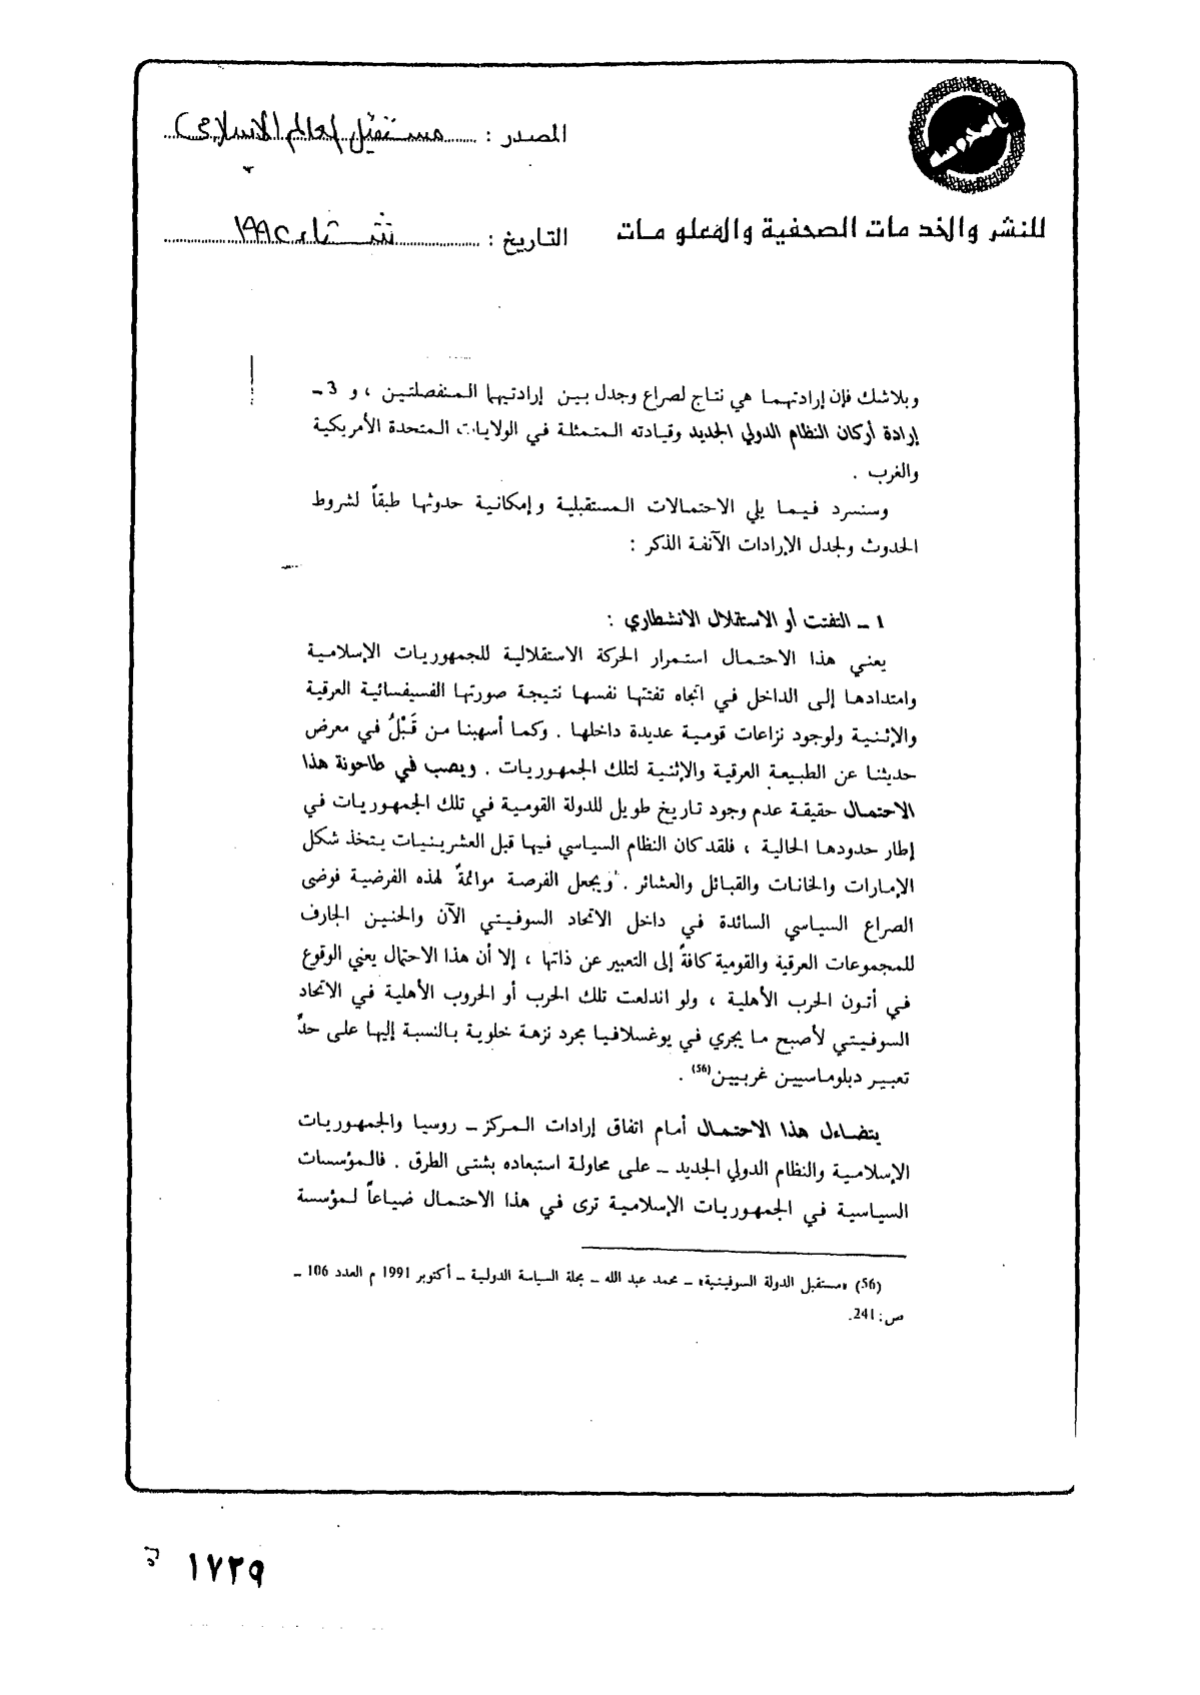 المصدر : مستقبل العالم الإسلامي
للنشر والخدمات الصحفية والمعلومات
التاريخ : شتاء ١٩٩٢
وبلاشك فإن إرادتهما هي نتاج لصراع وجدل بين إرادتيهما المنفصلتين ، و 3 ـ
إرادة أركان النظام الدولي الجديد وقيادته المتمثلة في الولايات المتحدة الأمريكية
والغرب .
وسنسرد فيما يلي الاحتمالات المستقبلية وإمكانية حدوثها طبقاً لشروط
الحدوث ولجدل الإرادات الآنفة الذكر :
١ ـ التفتت أو الاستقلال الانشطاري :
يعني هذا الاحتمال استمرار الحركة الاستقلالية للجمهوريات الإسلامية
وامتدادها إلى الداخل في اتجاه تفتتها نفسها نتيجة صورتها الفسيفسائية العرقية
والإثنية ولوجود نزاعات قومية عديدة داخلها . وكما أسهبنا من قَبْلُ في معرض
حديثنا عن الطبيعة العرقية والإثنية لتلك الجمهوريات . ويصب في طاحونة هذا
الاحتمال حقيقة عدم وجود تاريخ طويل للدولة القومية في تلك الجمهوريات في
إطار حدودها الحالية ، فلقد كان النظام السياسي فيها قبل العشرينيات يتخذ شكل
الإمارات والخانات والقبائل والعشائر . ويجعل الفرصة موائمةً لهذه الفرضية فوضى
الصراع السياسي السائدة في داخل الاتحاد السوفيتي الآن والحنين الجارف
للمجموعات العرقية والقومية كافةً إلى التعبير عن ذاتها ، إلا أن هذا الاحتمال يعني الوقوع
في أتون الحرب الأهلية ، ولو اندلعت تلك الحرب أو الحروب الأهلية في الاتحاد
السوفيتي لأصبح ما يجري في يوغسلافيا مجرد نزهة خلوية بالنسبة إليها على حدِّ
تعبير دبلوماسيين غربيين(56) .
يتضاءل هذا الاحتمال أمام اتفاق إرادات المركز ـ روسيا والجمهوريات
الإسلامية والنظام الدولي الجديد ـ على محاولة استبعاده بشتى الطرق . فالمؤسسات
السياسية في الجمهوريات الإسلامية ترى في هذا الاحتمال ضياعاً لمؤسسة
(56) «مستقبل الدولة السوفيتية» ـ محمد عبد الله ـ مجلة السياسة الدولية ـ أكتوبر 1991 م العدد 106 ـ
ص : 241.
١٧٣٩